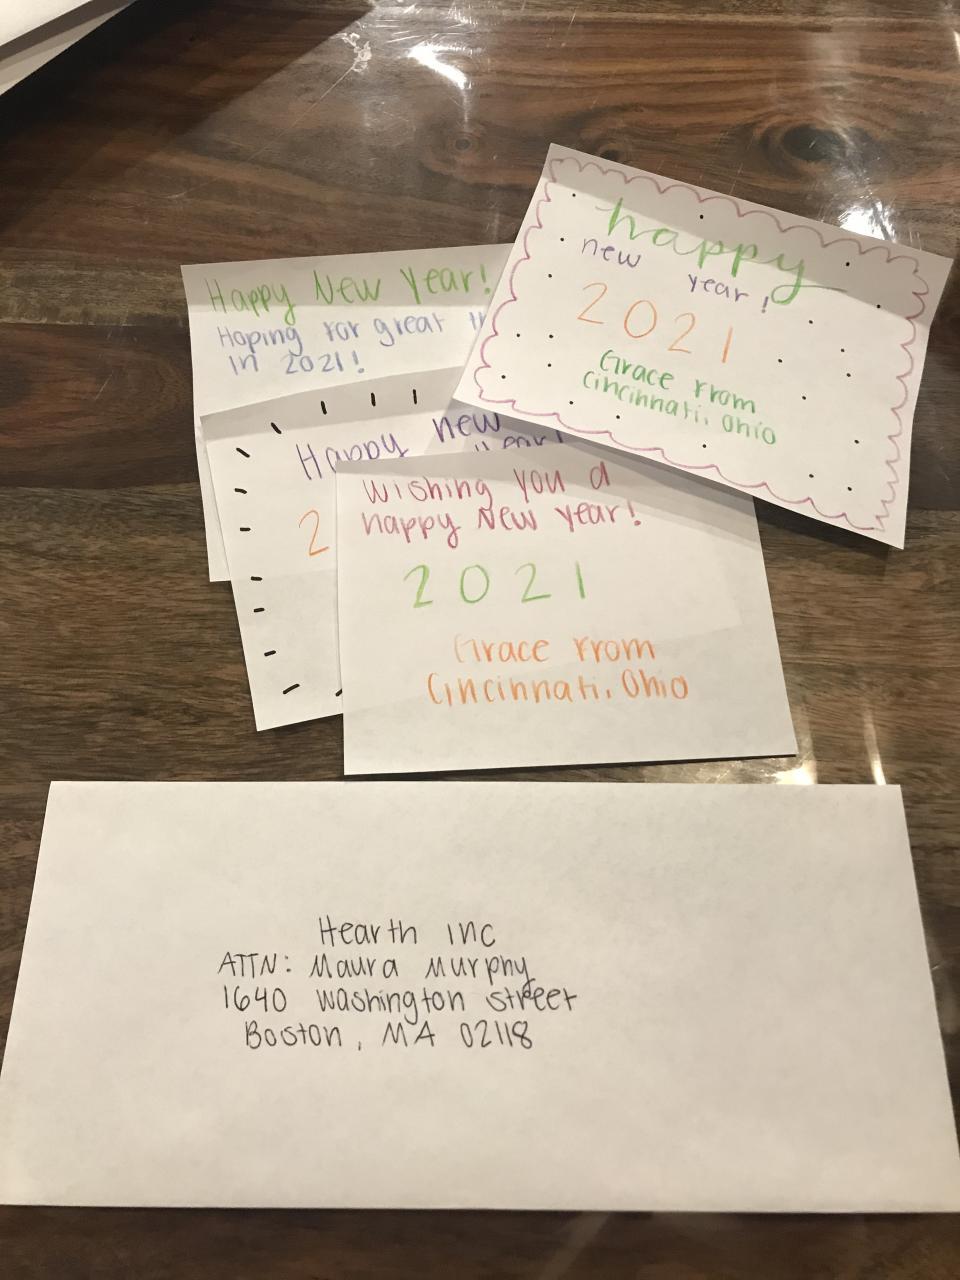 Happy New Year!
Hoping for great
in 2021!
happy
new year!
2021
Grace from
Cincinnati, Ohio
Happy new
year!
2
Wishing you a
happy New Year!
2021
Grace from
Cincinnati, Ohio
Hearth Inc
ATTN: Maura Murphy
1640 Washington street
Boston, MA 02118